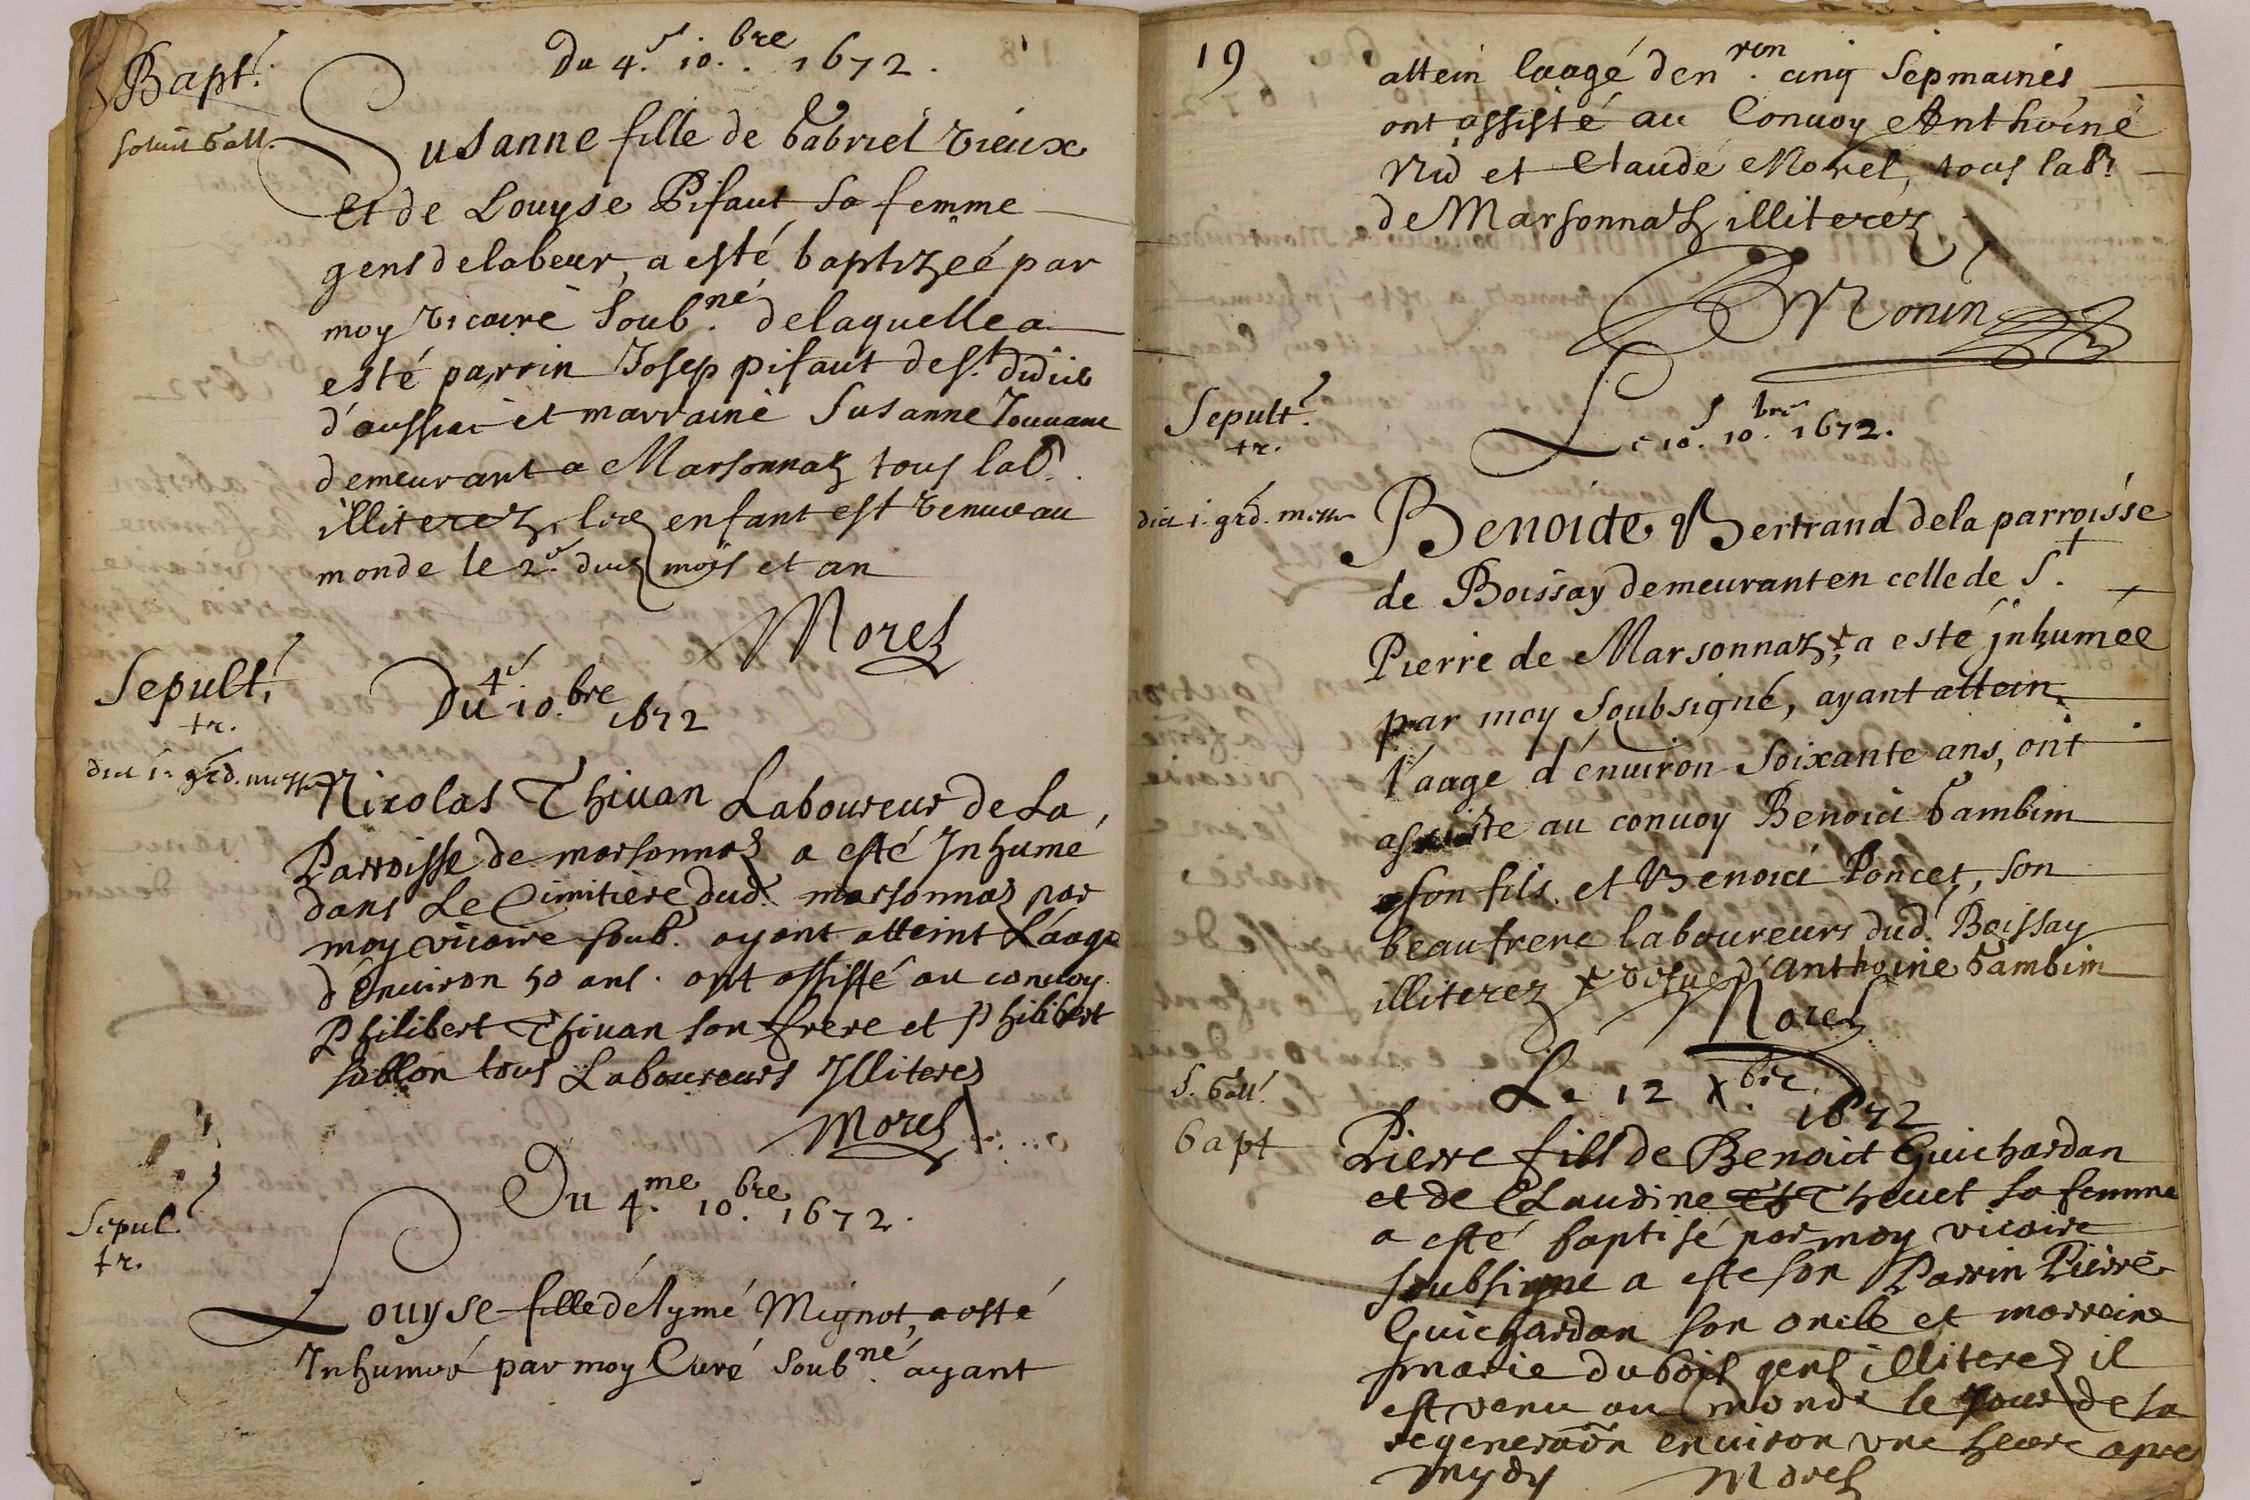 Bapt.
Du 4. 10.bre 1672.
solui Gall.
Susanne fille de Gabriel Vieux
Et de Louyse Pifaut sa femme
gens de labeur, a esté baptizeé par
moy vicaire soub.né de laquelle a
esté parrin Josep pifaut de St. didiié
d'aussiat et marraine Susanne Jouuane
demeurant a Marsonnaz tous lab.
illiterez, enfant est venue au
monde le 2. dud mois et an
Morel
Sepult.
tr.
Du 4 10.bre 1672
dict 1. grd. messe
Nicolas Thiuan Laboureur de La
Parroisse de marsonnaz a esté Inhume
dans Le Cimitiere dud. marsonnaz par
moy vicaire soub. ayant atteint L'aage
d'Enuiron 50 ans. ont assisté au conuoy
Philibert Thiuan son frere et Philibert
sallon tous Laboureurs Illiterez
Morel
Du 4.me 10.bre 1672.
Sepul.
tr.
Louyse fille d'éÿmé Mignot, a esté
Inhumeé par moy Curé soub.né ayant
19
attein l'aagé d'en.ron cinq sepmaines
ont assisté au Conuoy Anthoine
et Claude Morel, tous lab.
de Marsonnaz illiterez
Sepult.
tr.
Le 10. 10.bre 1672.
dict 1. grd. messe
Benoite Bertrand de la parroisse
de Boissay demeurant en celle de St.
Pierre de Marsonnaz, + a este jnhumée
par moy soubsigné, ayant attein
l'aage d'enuiron soixante ans, ont
assiste au conuoy Benoict Gambim
son fils. et Benoict Poncet, son
beaufrere laboureurs dud. Boissay
illiterez + vefue d'anthoine Gambim
Morel
S. Gall.
Le 12 Xbre. 1672
bapt
Pierre fils de Benoit Guichardan
et de Claudine Et Theuet sa femme
a esté baptisé par moy vicaire
soubsigne a este son Parrin Pierre
Guichardan son oncle et marreine
marie dubois gens illiterez il
est venu au monde le jour de sa
regeneraon enuiron vne heure apres
mydy Morel